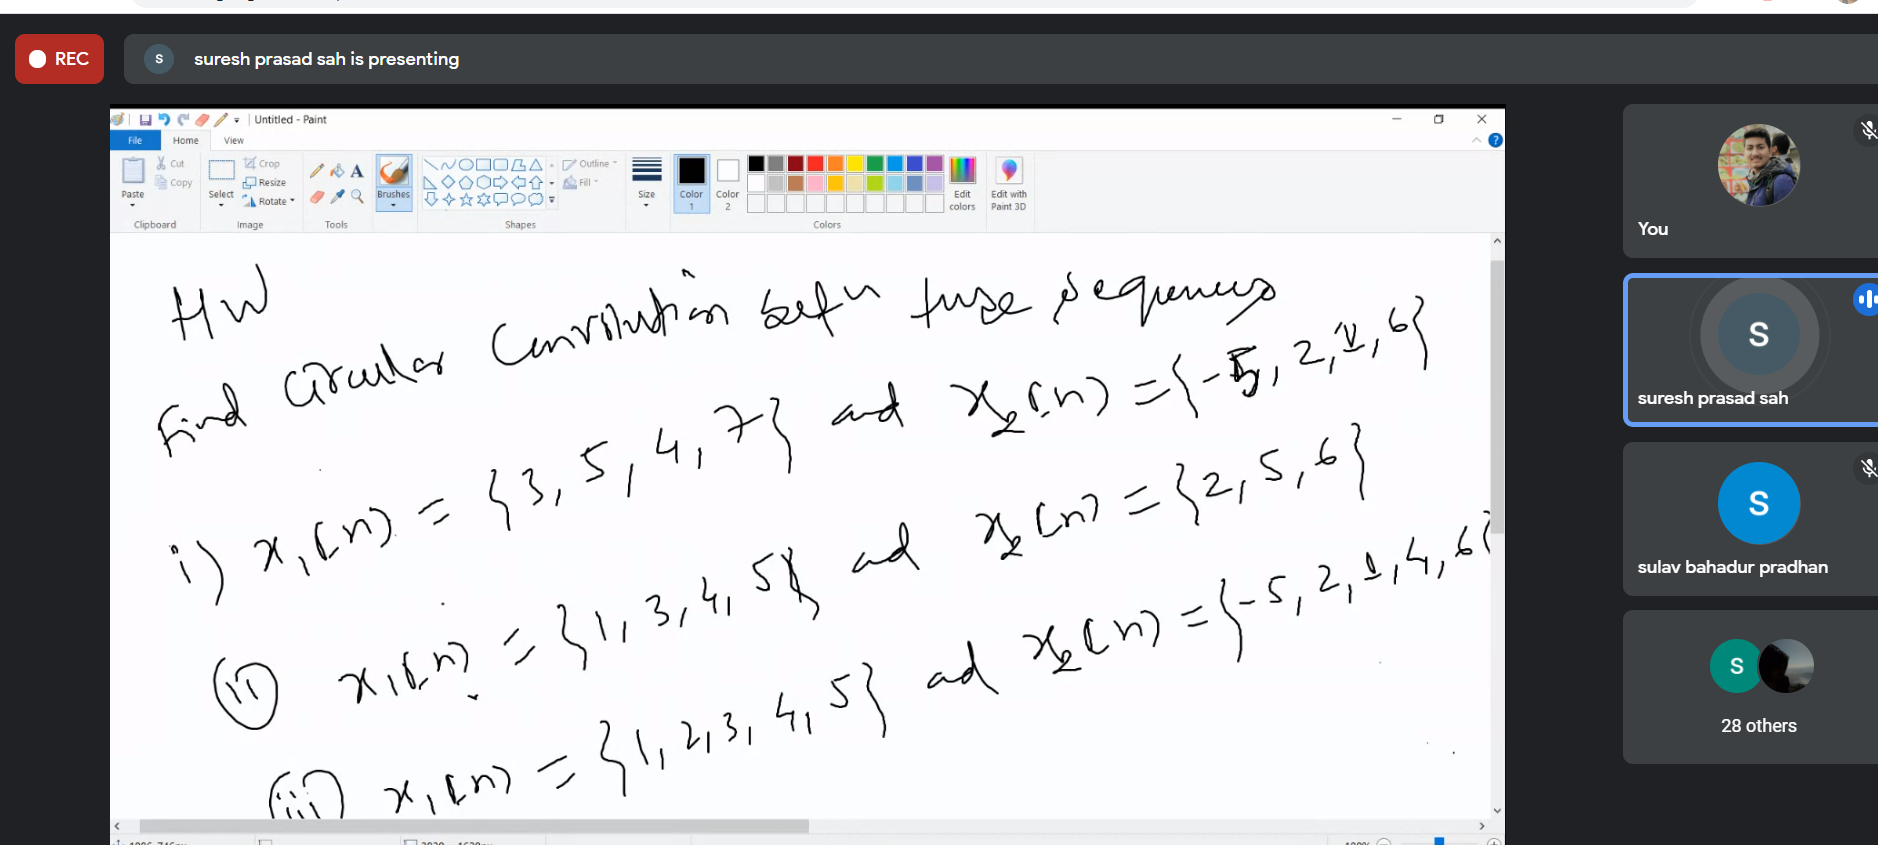 REC
S suresh prasad sah is presenting
Untitled - Paint
File Home View
Cut
Copy
Paste
Clipboard
Crop
Resize
Rotate
Select
Image
A
Tools
Brushes
Outline
Fill
Shapes
Size
Color 1
Color 2
Edit colors
Edit with Paint 3D
Colors
HW
Find Circular Convolution betn these sequences
i) x₁(n) = {3, 5, 4, 7} and x₂(n) = {-5, 2, 1, 6}
(ii) x₁(n) = {1, 3, 4, 5} ad x₂(n) = {2, 5, 6}
(iii) x₁(n) = {1, 2, 3, 4, 5} ad x₂(n) = {-5, 2, 1, 4, 6}
You
S
suresh prasad sah
S
sulav bahadur pradhan
S
28 others